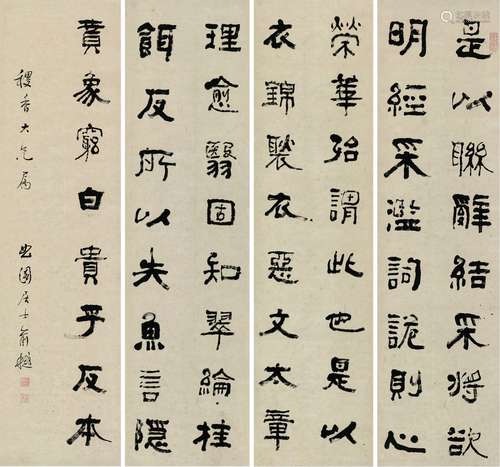 是以聯辭結采將欲
明經采濫詞詭則心
榮華殆謂此也是以
衣錦褧衣惡文太章
理愈翳固知翠綸桂
餌反所以失魚言隱
賁象窮白貴乎反本
香大兄属
曲園居士俞樾